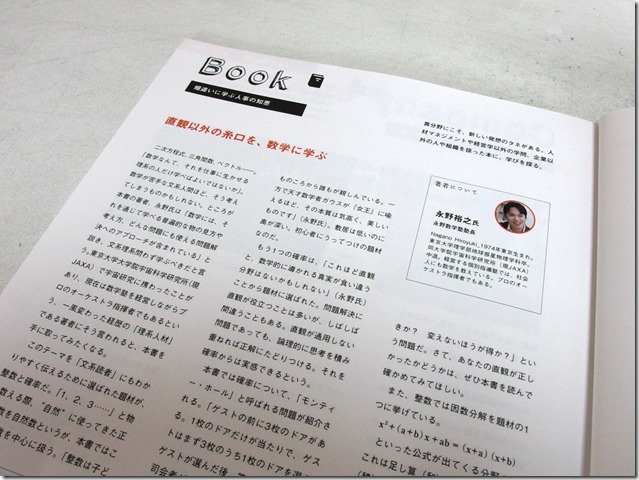 Book
畑違いに学ぶ人事の知恵
異分野にこそ、新しい発想のタネがある。人
材マネジメントや経営学以外の学問、企業以
外の人や組織を扱った本に、学びを探る。
直観以外の糸口を、数学に学ぶ
二次方程式、三角関数、ベクトル──。
「数学なんて、それを仕事に生かせる
理系の人だけ学べばよいではないか」。
数学が苦手な文系人間ほど、そう考え
てしまうものかもしれない。ところが
本書の著者、永野氏は「数学には、そ
れを通じて学べる普遍的な物の見方や
考え方、どんな問題にも使える問題解
決へのアプローチが含まれている」と
説き、文系理系問わず学ぶべきだと言
う。東京大学大学院宇宙科学研究所（現
JAXA）で宇宙研究に携わったことが
あり、現在は数学塾を経営しながらプ
ロのオーケストラ指揮者でもあるとい
う、一風変わった経歴の「理系人材」
である著者にそう言われると、本書を
手に取ってみたくなる。
このテーマを「文系読者」にもわか
りやすく伝えるために選ばれた題材が、
整数と確率だ。「1、2、3……」と物
数える際、“自然”に使ってきた正
数を自然数というが、本書ではこ
数を中心に扱う。「整数は子ど
ものころから誰もが親しんでいる。一
方で天才数学者ガウスが「女王」に喩
えるほど、その本質は気高く、美しい
ものです」（永野氏）。敷居は低いのに
奥が深い。初心者にうってつけの題材
なのだ。
もう1つの確率は、「これほど直観
と、数学的に導かれる真実が食い違う
分野はないかもしれない」（永野氏）
ことから題材に選ばれた。問題解決に
直観が役立つことは多いが、しばしば
間違うこともある。直観が通用しない
問題であっても、論理的に思考を積み
重ねれば正解にたどりつける。それを
確率からは実感できるという。
本書では確率について、「モンティ
ー・ホール」と呼ばれる問題が紹介さ
れる。「ゲストの前に3枚のドアがあ
る。1枚のドアだけが当たりで、ゲス
トはまず3枚のうち1枚のドアを選
ゲストが選んだ後、
司会者
著者について
永野裕之氏
永野数学塾塾長
Nagano Hiroyuki_1974年東京生まれ。
東京大学理学部地球惑星物理学科卒。
同大学院宇宙科学研究所（現JAXA）
中退。経営する個別指導塾では、社会
人にも数学を教えている。プロのオー
ケストラ指揮者でもある。
きか？ 変えないほうが得か？」とい
う問題だ。さて、あなたの直観が正し
かったかどうかは、ぜひ本書を読んで
確かめてみてほしい。
また、整数では因数分解を題材の1
つに挙げている。
x²+(a+b)x+ab=(x+a)(x+b)
といった公式が出てくる分野
これは足し算